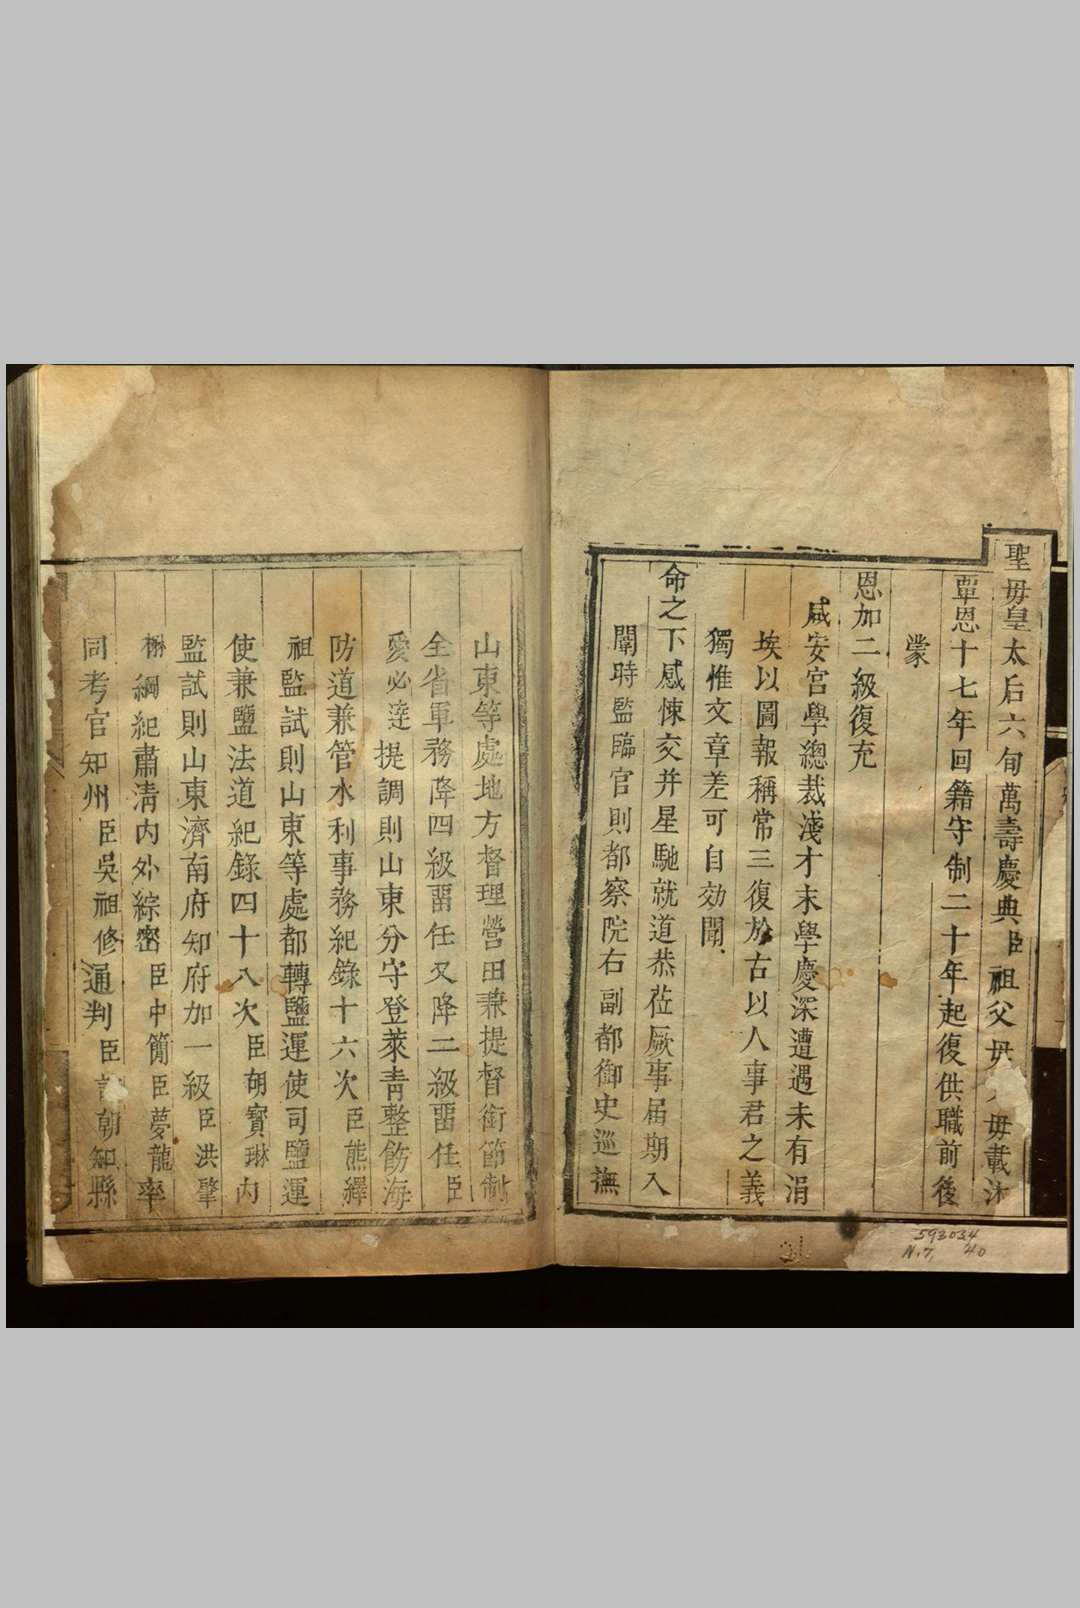 聖母皇太后六旬萬壽慶典臣祖父母 母載沐
覃恩十七年回籍守制二十年起復供職前後
蒙
恩加二級復充
咸安宮學總裁淺才末學慶深遭遇未有涓
埃以圖報稱常三復於古以人事君之義
獨惟文章差可自効聞
命之下感悚交并星馳就道恭莅厥事届期入
闈時監臨官則都察院右副都御史巡撫
山東等處地方督理營田兼提督銜節制
全省軍務降四級畱任又降二級畱任臣
愛必達提調則山東分守登萊青整飭海
防道兼管水利事務紀錄十六次臣熊繹
祖監試則山東等處都轉鹽運使司鹽運
使兼鹽法道紀錄四十八次臣胡寶琳內
監試則山東濟南府知府加一級臣洪肇
楙綱紀肅清內外綜密臣中簡臣夢龍率
同考官知州臣吳祖修通判臣 朝知縣
593034
N.7, 40